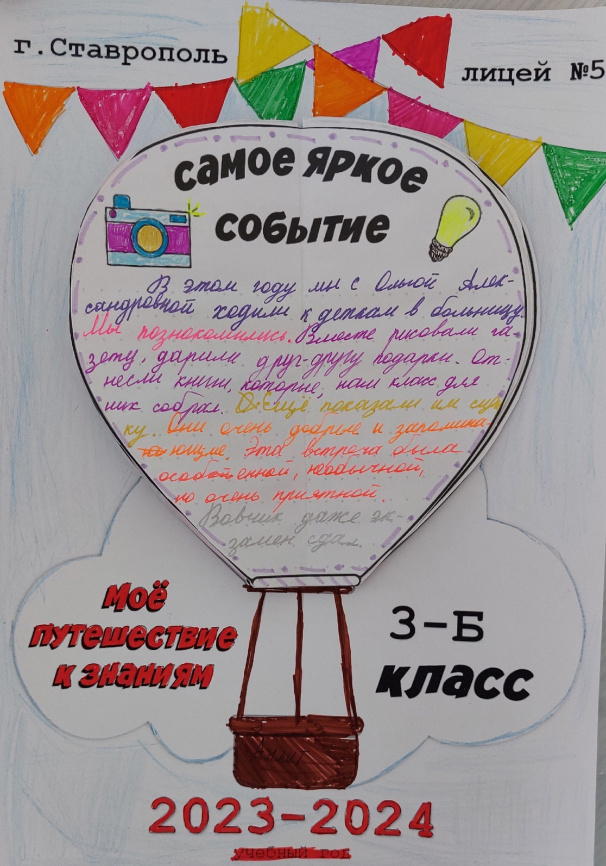 г.Ставрополь
лицей №5
самое яркое
событие
В этом году мы с Ольгой Алек-
сандровной ходили к деткам в больницу.
Мы познакомились. Вместе рисовали га
зету, дарили друг-другу подарки. От-
несли книги, которые, наш класс для
них собрал. Ещё показали им
ку. Они очень добрые и запомина-
ющие. Эта встреча была
особенной, необычной,
но очень приятной.
Вовчик даже эк-
замен сдал.
Моё
путешествие
к знаниям
3-Б
класс
2023-2024
учебный год